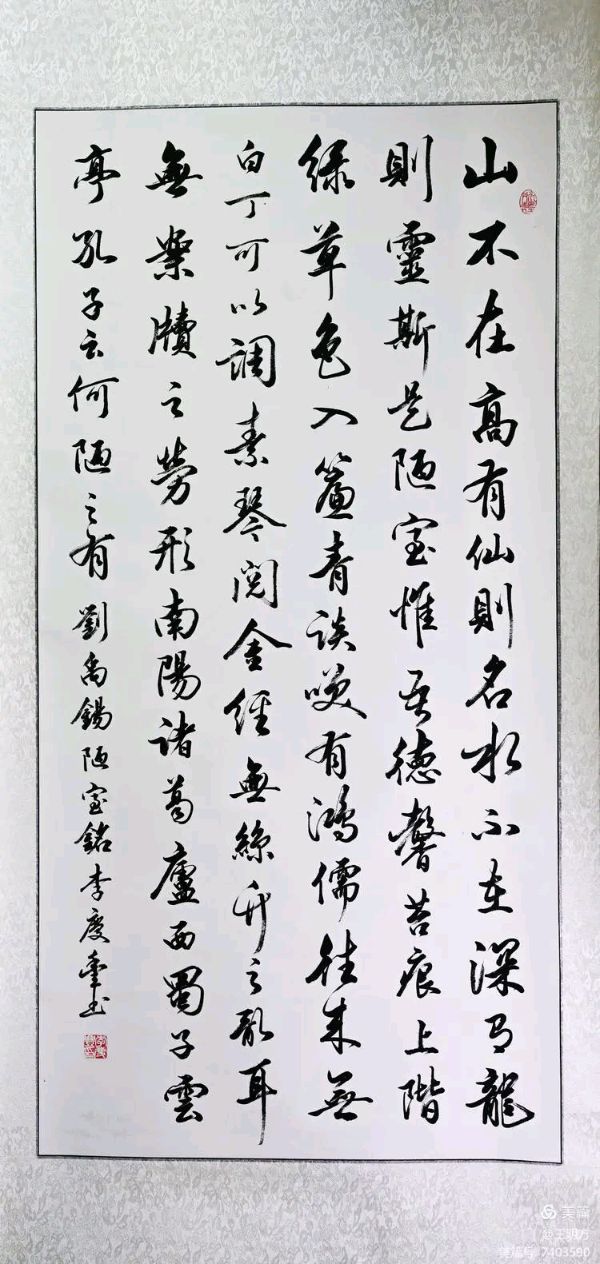 山不在高有仙則名水不在深有龍
則靈斯是陋室惟吾德馨苔痕上階
绿草色入簾青談咲有鴻儒往来無
白丁可以調素琴閱金經無絲竹之亂耳
無案牘之勞形南陽諸葛廬西蜀子雲
亭孔子云何陋之有 劉禹錫陋室銘李慶书
美篇
@王明方
美篇号:7403590